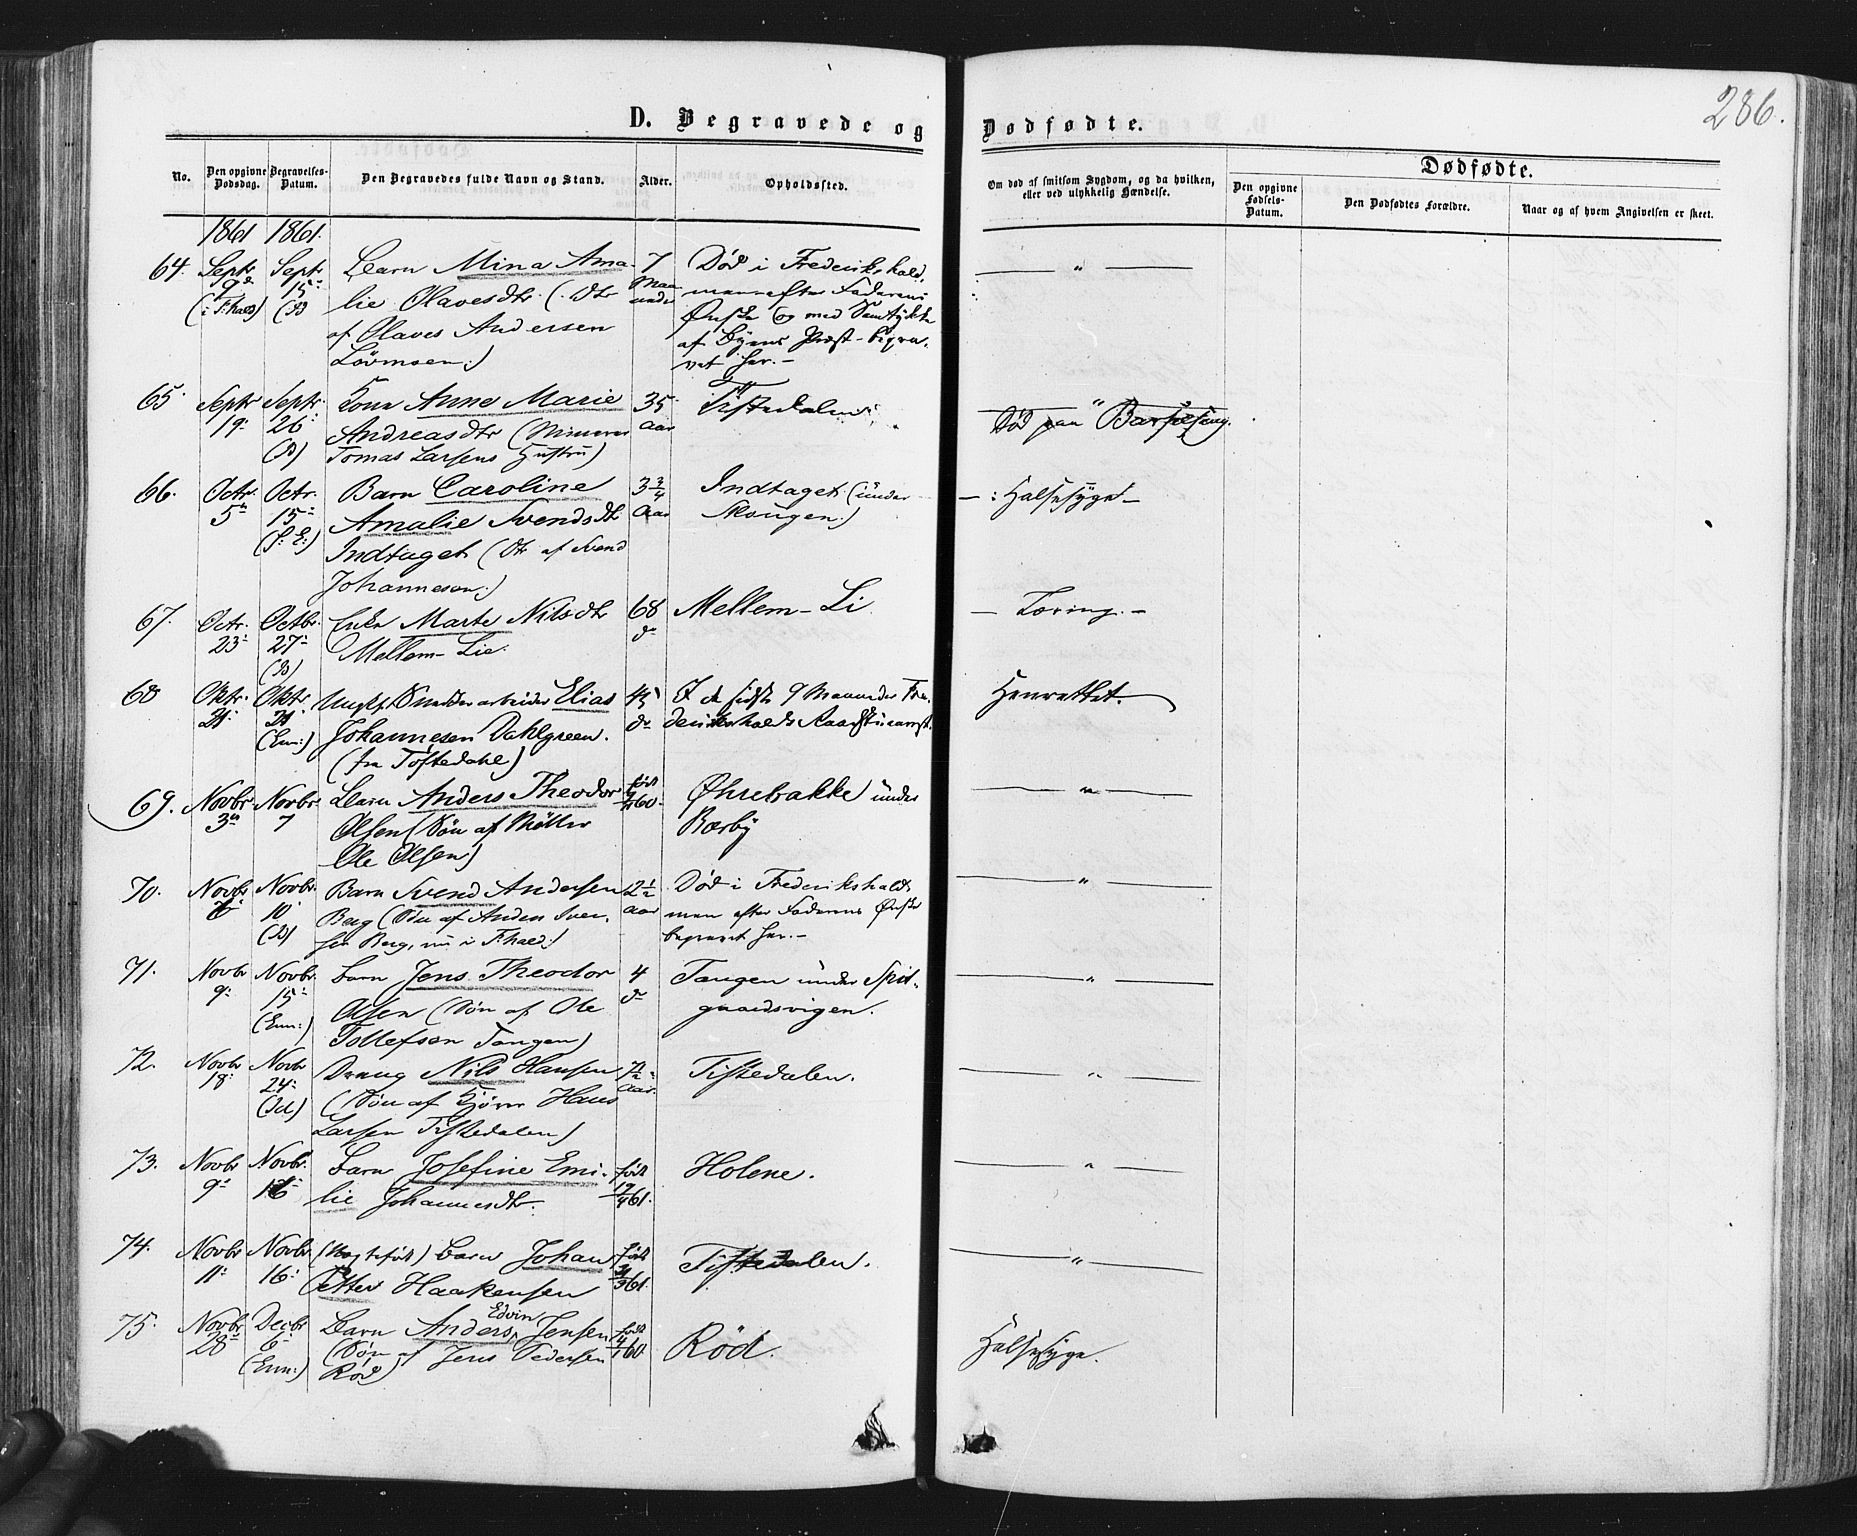 286.
D. Begravede og Dødfødte.
No.
Den opgivne Dødsdag.
Begravelses-Datum.
Den Begravedes fulde Navn og Stand.
Alder.
Opholdssted.
Om død af smitsom Sygdom, og da hvilken,
eller ved ulykkelig Hændelse.
Dødfødte.
Den opgivne Fødsels-Datum.
Den Dødfødtes Forældre.
Naar og af hvem Angivelsen er skeet.
1861 1861.
64. Septr Septr Barn Mina Ama- 7 Død i Frederikshald, — " —
9de 15: lie Olavesdtr. (: Dtr Maaneder men efter Faderens
(i F:hald) af Olaves Andersen Ønske og med Samtykke
Lövmoen:) af Byens Præst begra-
vet her.-
65. Septr Septr. Kone Anne Marie 35 Tistedalen — " —
19: 26: Andreasdtr (Minerer Aar Død paa Barselseng.
Tomas Larsens Hustru)
66. Octr. Octr. Barn Caroline 3 3/4 Indtaget (under —: Halssyge —
5te 15: Amalie Svendsdtr Aar Skougen:)
(S: E:) Indtaget (Dtr af Svend
Johannesen:)
67. Octr. Octbr. Enke Marte Nilsdtr 68 Mellem-Li. — Tæring. —
23: 27: Mellem-Lie. do
68 Oktr. Oktr. Ungk. Smedderarbeider Elias 45 I de sidste 9 Maaneder Fre- Henrettet.
21: 21: Johannesen Dahlgreen. do derikshalds Raadstuearrest.
(Enn:) (fra Tistedahl)
69. Novbr Novbr. Barn Anders Theodor født Øhrebakke under — " —
3de 7 Olsen (Søn af Møller 60. Bærby
Ole Olsen)
70. Novbr Novbr. Barn Svend Andersen 2 1/2 Død i Frederikshald, — " —
10: Berg (Søn af Anders Sven- Aar men efter Faderens Ønske
sen Berg, nu i F:hald:) begravet her.-
71. Novbr Novbr. Barn Jens Theodor 4 Tangen under Spid- — " —
9: 15: Olsen (Søn af Ole do gaardsvigen.
(Enn:) Tollefsen Tangen)
72. Novbr Novbr Dreng Nils Hansen Tistedalen. — " —
18: 24: (Søn af Kjörer Hans Aar.
(Id.) Larsen Tistedalen)
73. Novbr Novbr. Barn Josefine Emi- født Holene. — " —
9: 16: lie Johannesdtr. 17/4 61.
74. Novbr Novbr (Uægtefødt) Barn Johan født Tistedalen. — " —
11: 16: Petter Haakensen 31/3 61.
75. Novbr Decbr Barn Anders Edvin Jensen født Rød. Halssyge.
28: 6: (Søn af Jens Pedersen 60
(Enn:) Rød)